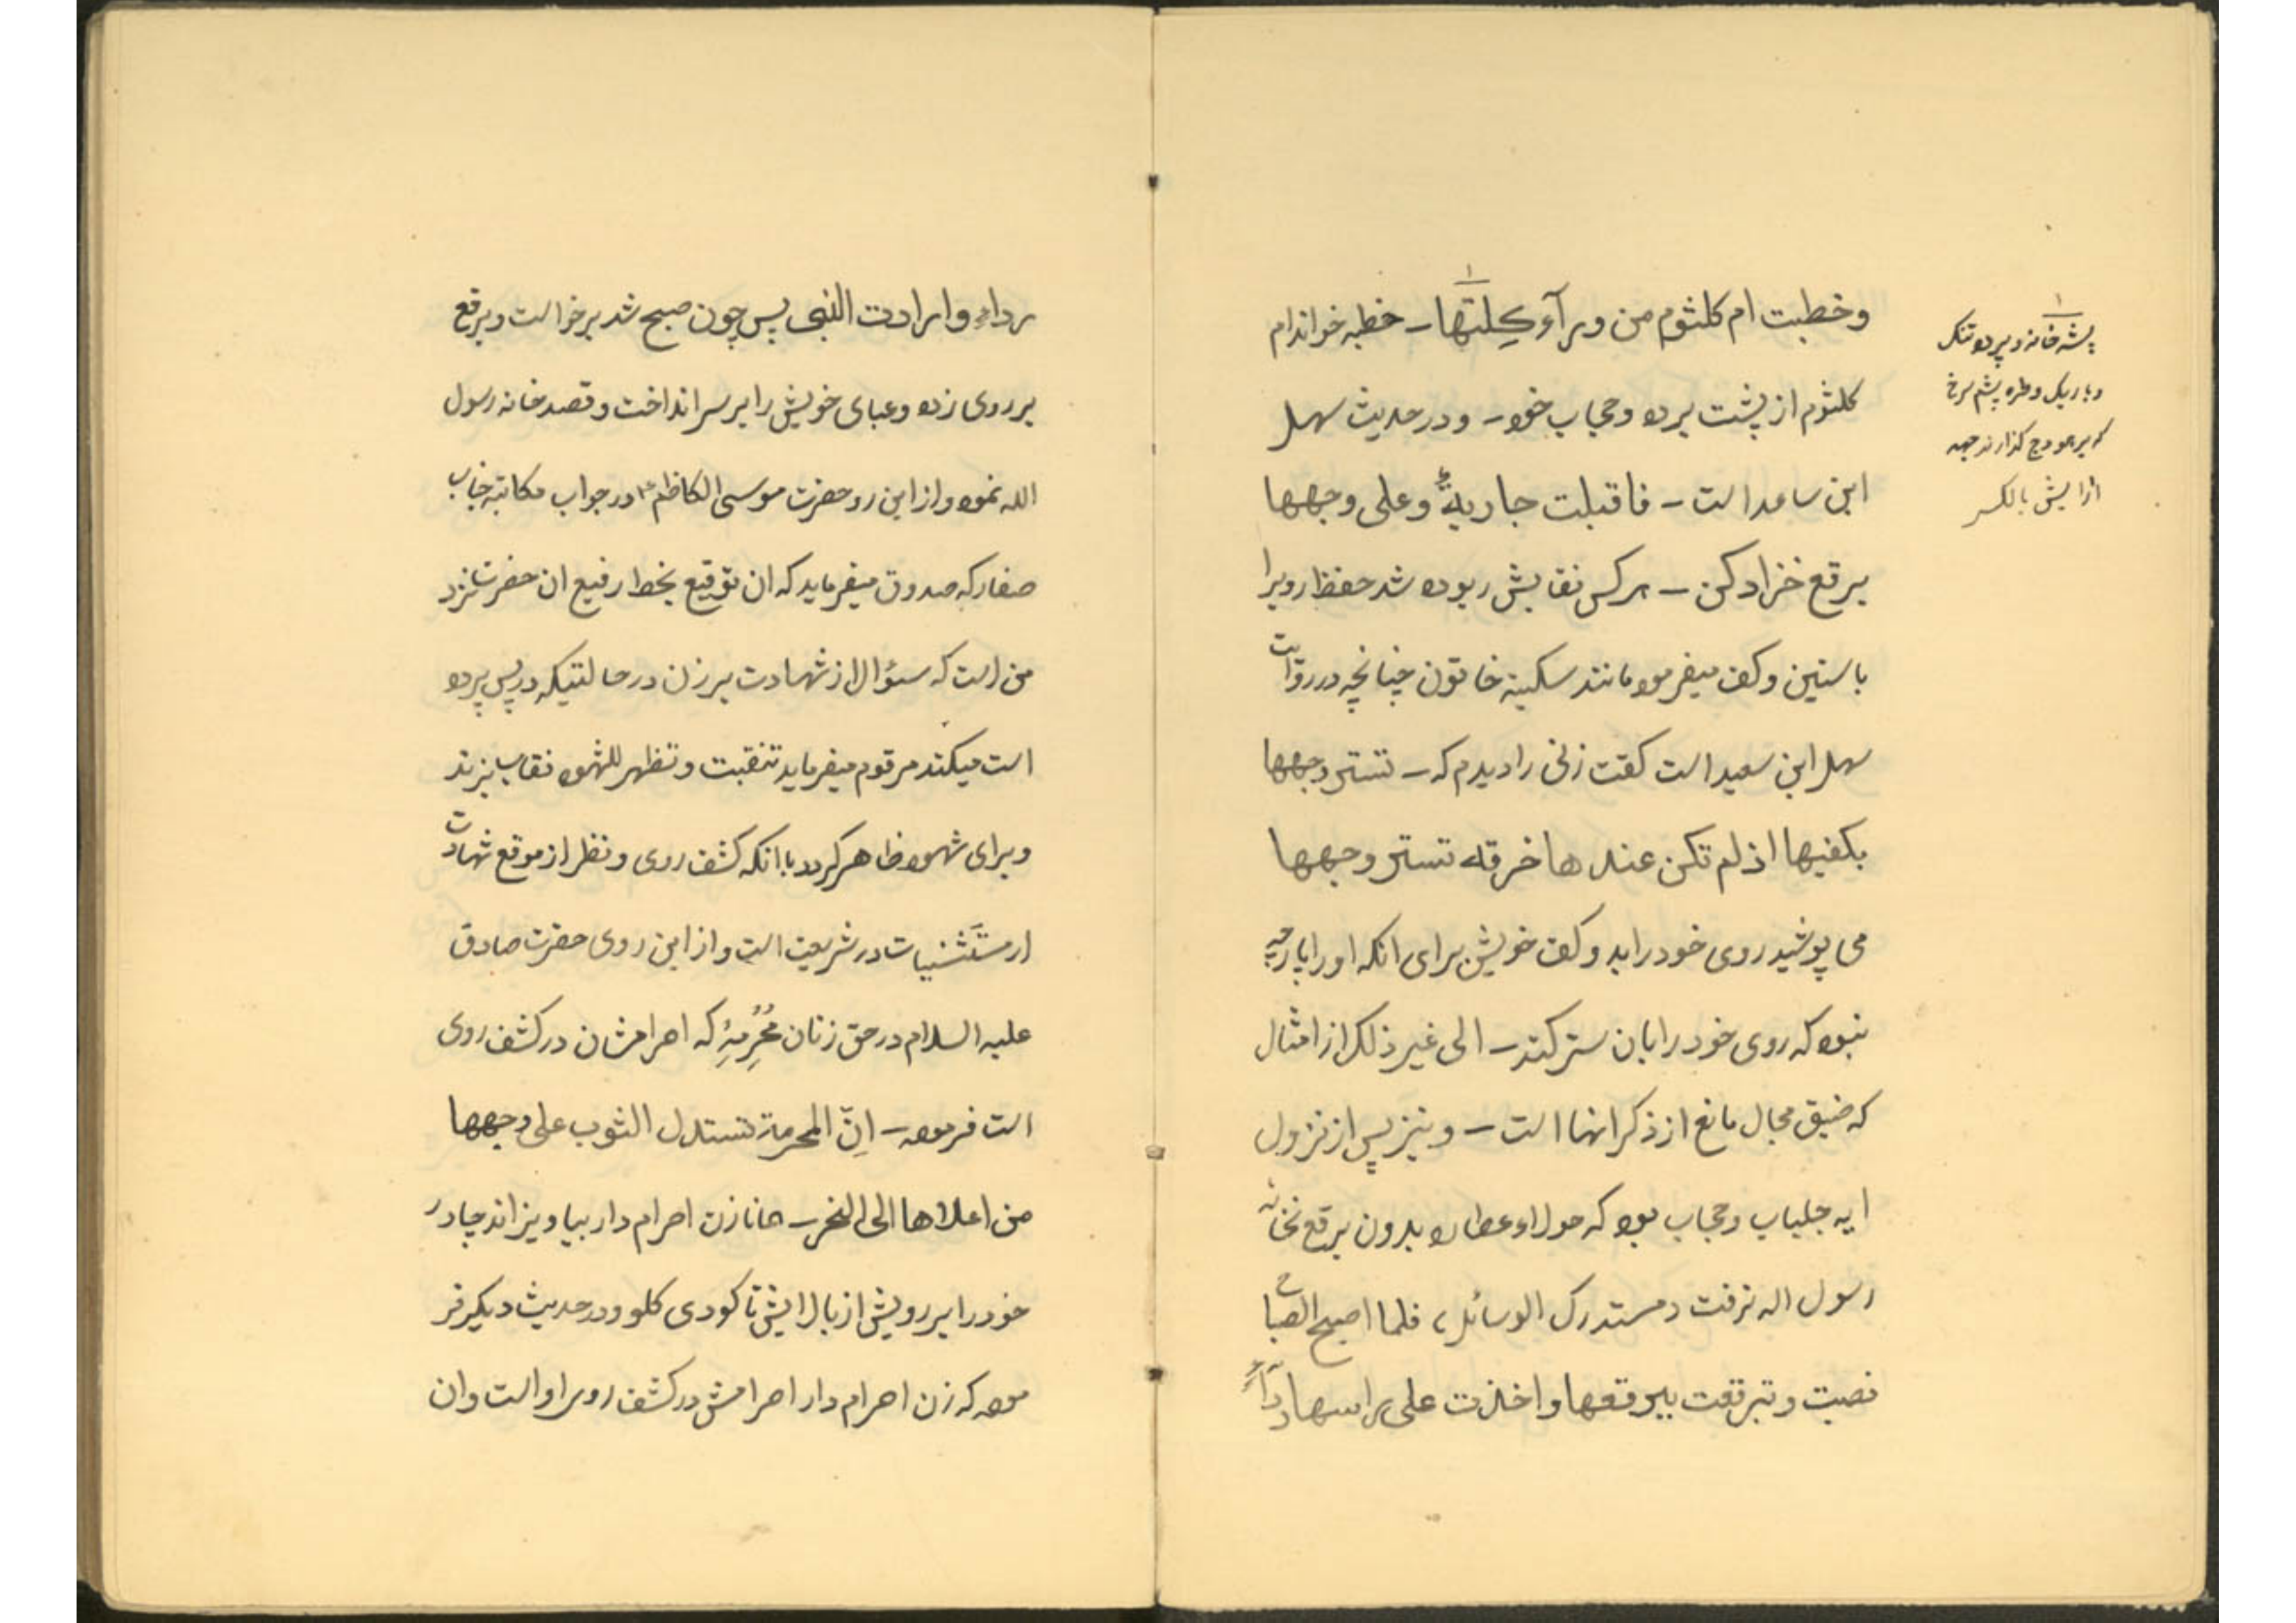 وخطبت ام کلثوم من ورآء کِلّتها ـ خطبه خواند ام
کلثوم از پشت پرده وحجاب خود ـ ودر حدیث سهل
ابن ساعد است ـ فاقبلت جاریةٌ وعلی وجهها
برقع خزادکن ـ هرکس نقابش ربوده شد حفظ رویرا
باستین وکف میفرمود مانند سکینه خاتون چنانچه در روایت
سهل ابن سعید است گفت زنی را دیدم که ـ تستر وجهها
بکفیها اذ لم تکن عندها خرقه تستر وجهها
می پوشید روی خود را بدو کف خویش برای انکه او را پارچه
نبود که روی خود را بان ستر کند ـ الی غیر ذلک از امثال
که ضیق مجال مانع از ذکر انها است ـ ونیز پس از نزول
ایه جلباب وحجاب بود که حولاء عطاره بدون برقع بخانه
رسول اله نرفت دمستدرک الوسائل، فلما اصبح الصباح
نصبت وتبرقعت ببرقعها واخذت علی راسها رداءً
۱
پشه خانه وپرده تنک
وباریک وطره پشم سرخ
که بر هودج گذارند جهه
ارایش بالکسر
رداء وارادت النبی پس چون صبح شد برخواست وبرقع
بر روی زده وعبای خویش را بر سر انداخت وقصد خانه رسول
الله نموده واز این رو حضرت موسی الکاظم ع در جواب مکاتبه جناب
صفار که صدوق میفرماید که ان توقیع بخط رفیع ان حضرت نزد
من است که سؤال از شهادت بر زن در حالتیکه در پس پرده
است میکند مرقوم میفرماید تتنقبت وتظهر للشهود نقاب بزند
وبرای شهود ظاهر گردد باانکه کشف روی ونظر از موقع شهادت
از مستَثنیات در شریعت است واز این روی حضرت صادق
علیه السلام در حق زنان مُحْرِمِهِ که احرامشان در کشف روی
است فرموده ـ اِنّ المحرمة تستدل الثوب علی وجهها
من اعلاها الی النحر ـ همانا زن احرام دار بیاویزاند چادر
خود را بر رویش از بالایش تا گودی گلو ودر حدیث دیگر فر
موده که زن احرام دار احرامش در کشف روی او است وان